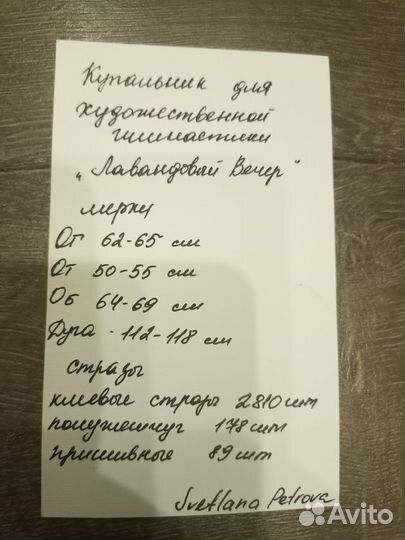 Купальник для
художественной
гимнастики
„Лавандовый Вечер"
мерки
ОГ 62-65 см
ОТ 50-55 см
Об 64-69 см
Дуга - 112-118 см
стразы
клеевые стразы 2810 шт
полужемчуг 178 шт
пришивные 89 шт
Svetlana Petrova
Avito